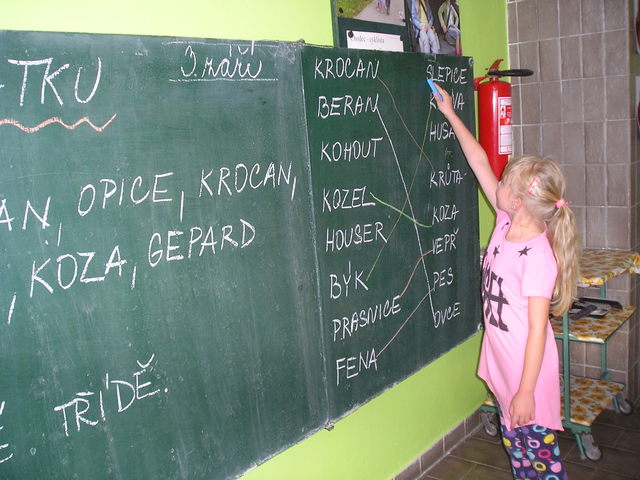 -TKU
3. září
AN, OPICE, KROCAN,
, KOZA, GEPARD
TŘÍDĚ.
KROCAN
BERAN
KOHOUT
KOZEL
HOUSER
BÝK
PRASNICE
FENA
SLEPICE
HUSA
KRŮTA
KOZA
VEPŘ
PES
OVCE